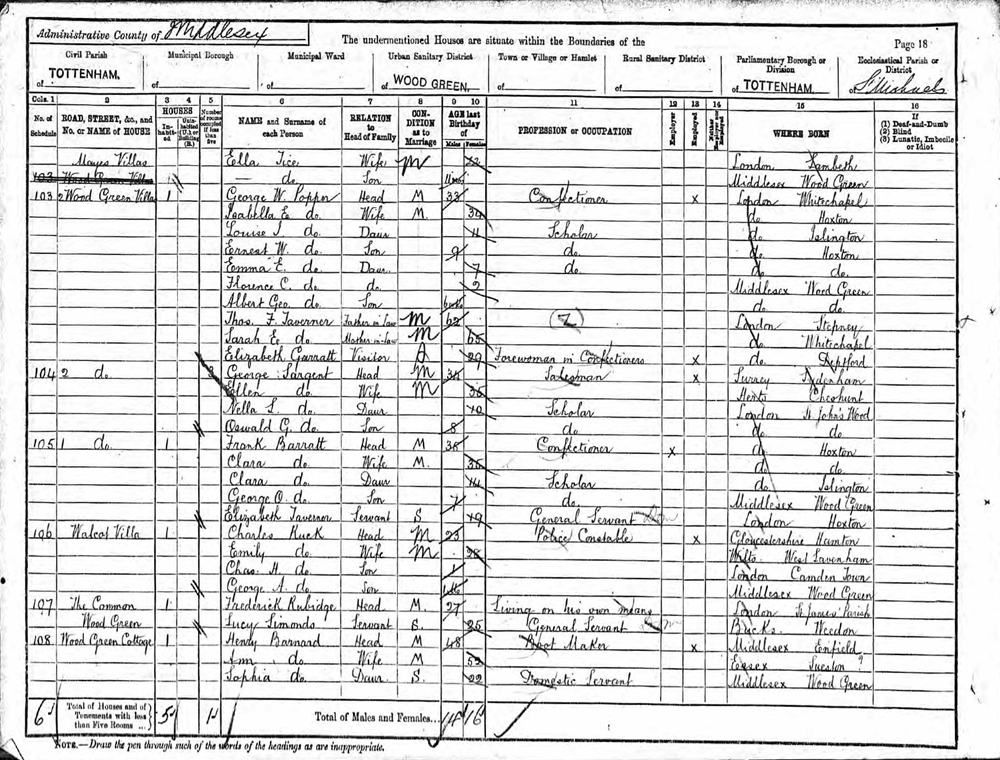 Administrative County of Middlesex
The undermentioned Houses are situate within the Boundaries of the
Page 18
Civil Parish of TOTTENHAM.
Municipal Borough of
Municipal Ward of
Urban Sanitary District of WOOD GREEN.
Town or Village or Hamlet of
Rural Sanitary District of
Parliamentary Borough or Division of TOTTENHAM.
Ecclesiastical Parish or District of St Michaels
Cols. 1 2 3 4 5 6 7 8 9 10 11 12 13 14 15 16
No. of Schedule
ROAD, STREET, &c., and No. or NAME of HOUSE
HOUSES
Inhabited
Uninhabited (U.) or Building (B.)
Number of rooms occupied if less than five
NAME and Surname of each Person
RELATION to Head of Family
CONDITION as to Marriage
AGE last Birthday of
Males Females
PROFESSION or OCCUPATION
Employer
Employed
Neither employer nor employed
WHERE BORN
If
(1) Deaf-and-Dumb
(2) Blind
(3) Lunatic, Imbecile or Idiot
Mayes Villas Ella Tice Wife M 22 London Lambeth
103 Wood Green Villas — do. Son 11 mos Middlesex Wood Green
103 2 Wood Green Villa 1 George W. Popper Head M 33 Confectioner x London Whitechapel
Isabella E. do. Wife M. 34 do. Hoxton
Louise J. do. Daur 11 Scholar do. Islington
Ernest W. do. Son 9 do. do. Hoxton
Emma E. do. Daur 7 do. do. do.
Florence C. do. do. 2 Middlesex Wood Green
Albert Geo. do. Son do. do.
Thos. F. Taverner Father in law M 62 London Stepney
Sarah E. do. Mother in law M 65 do. Whitechapel
Elizabeth Garratt Visitor 29 Forewoman in Confectioners x do. Deptford
104 2 do. George Sargent Head M Salesman x Surrey Sydenham
Ellen do. Wife M 36 Herts Cheshunt
Nella L. do. Daur 10 Scholar London St John's Wood
Oswald G. do. Son 8 do do. do.
105 1 do. 1 Frank Barratt Head M 35 Confectioner x do. Hoxton
Clara do. Wife M. 35 do. do.
Clara do. Daur 14 Scholar do. Islington
George O. do. Son 7 do. Middlesex Wood Green
Elizabeth Taverner Servant S. 19 General Servant London Hoxton
106 Walcot Villa 1 Charles Ruck Head M 23 Police Constable x Gloucestershire Hamton
Emily do. Wife M 28 Wilts West Lavenham
Chas. H. do. Son 1 London Camden Town
George A. do. Son Middlesex Wood Green
107 The Common 1 Frederick Rubidge Head M. 27 Living on his own means London St James' Parish
Wood Green Lucy Simonds Servant S. 25 General Servant Bucks. Weedon
108 Wood Green Cottage 1 Henry Barnard Head M 48 Boot Maker x Middlesex Enfield
Ann do. Wife M 53 Essex
Sophia do. Daur S. 22 Domestic Servant Middlesex Wood Green
6 Total of Houses and of Tenements with less than Five Rooms ... 5 1 Total of Males and Females... 14 16
NOTE.—Draw the pen through such of the words of the headings as are inappropriate.